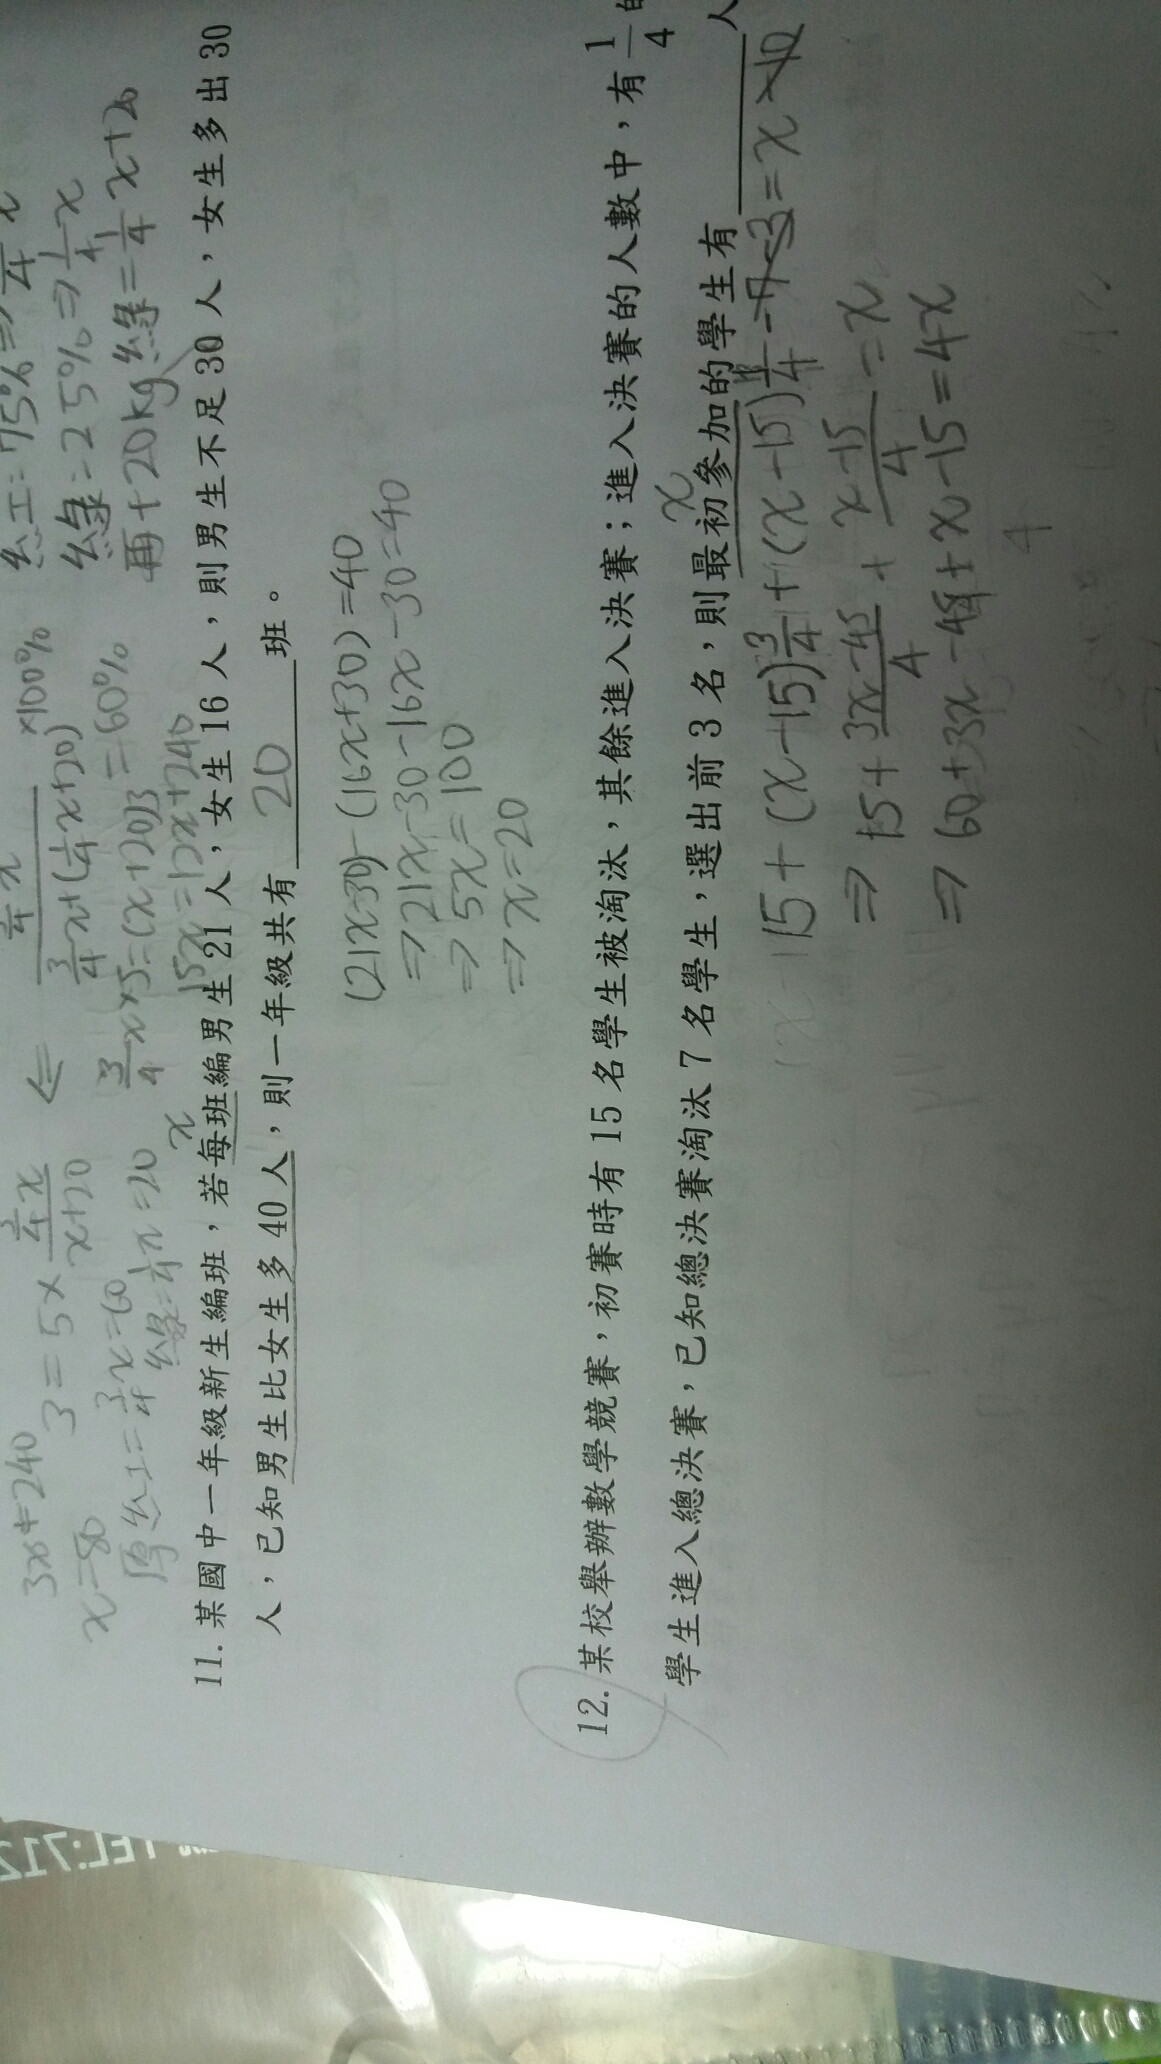 紅=75%⇒3/4x
綠=25%⇒1/4x
再+20kg 綠=1/4x+20
3/4x/(3/4x+(1/4x+20))×100%
=60%
3/4x×5=(x+20)3
15x=12x+240
3x=240
x=80
3=5×(3/4x)/(x+20)
原紅=3/4x=60
綠=1/4x=20
11. 某國中一年級新生編班，若每班編男生 21 人，女生 16 人，則男生不足 30 人，女生多出 30
x
人，已知男生比女生多 40 人，則一年級共有 20 班。
(21x-30)-(16x+30)=40
⇒21x-30-16x-30=40
⇒5x=100
⇒x=20
12. 某校舉辦數學競賽，初賽時有 15 名學生被淘汰，其餘進入決賽；進入決賽的人數中，有 1/4 的
學生進入總決賽，已知總決賽淘汰 7 名學生，選出前 3 名，則最初參加的學生有 人
x
15+(x-15)3/4+(x-15)1/4-7-3=x-10
⇒15+(3x-45)/4+(x-15)/4=x
⇒60+3x-45+x-15=4x